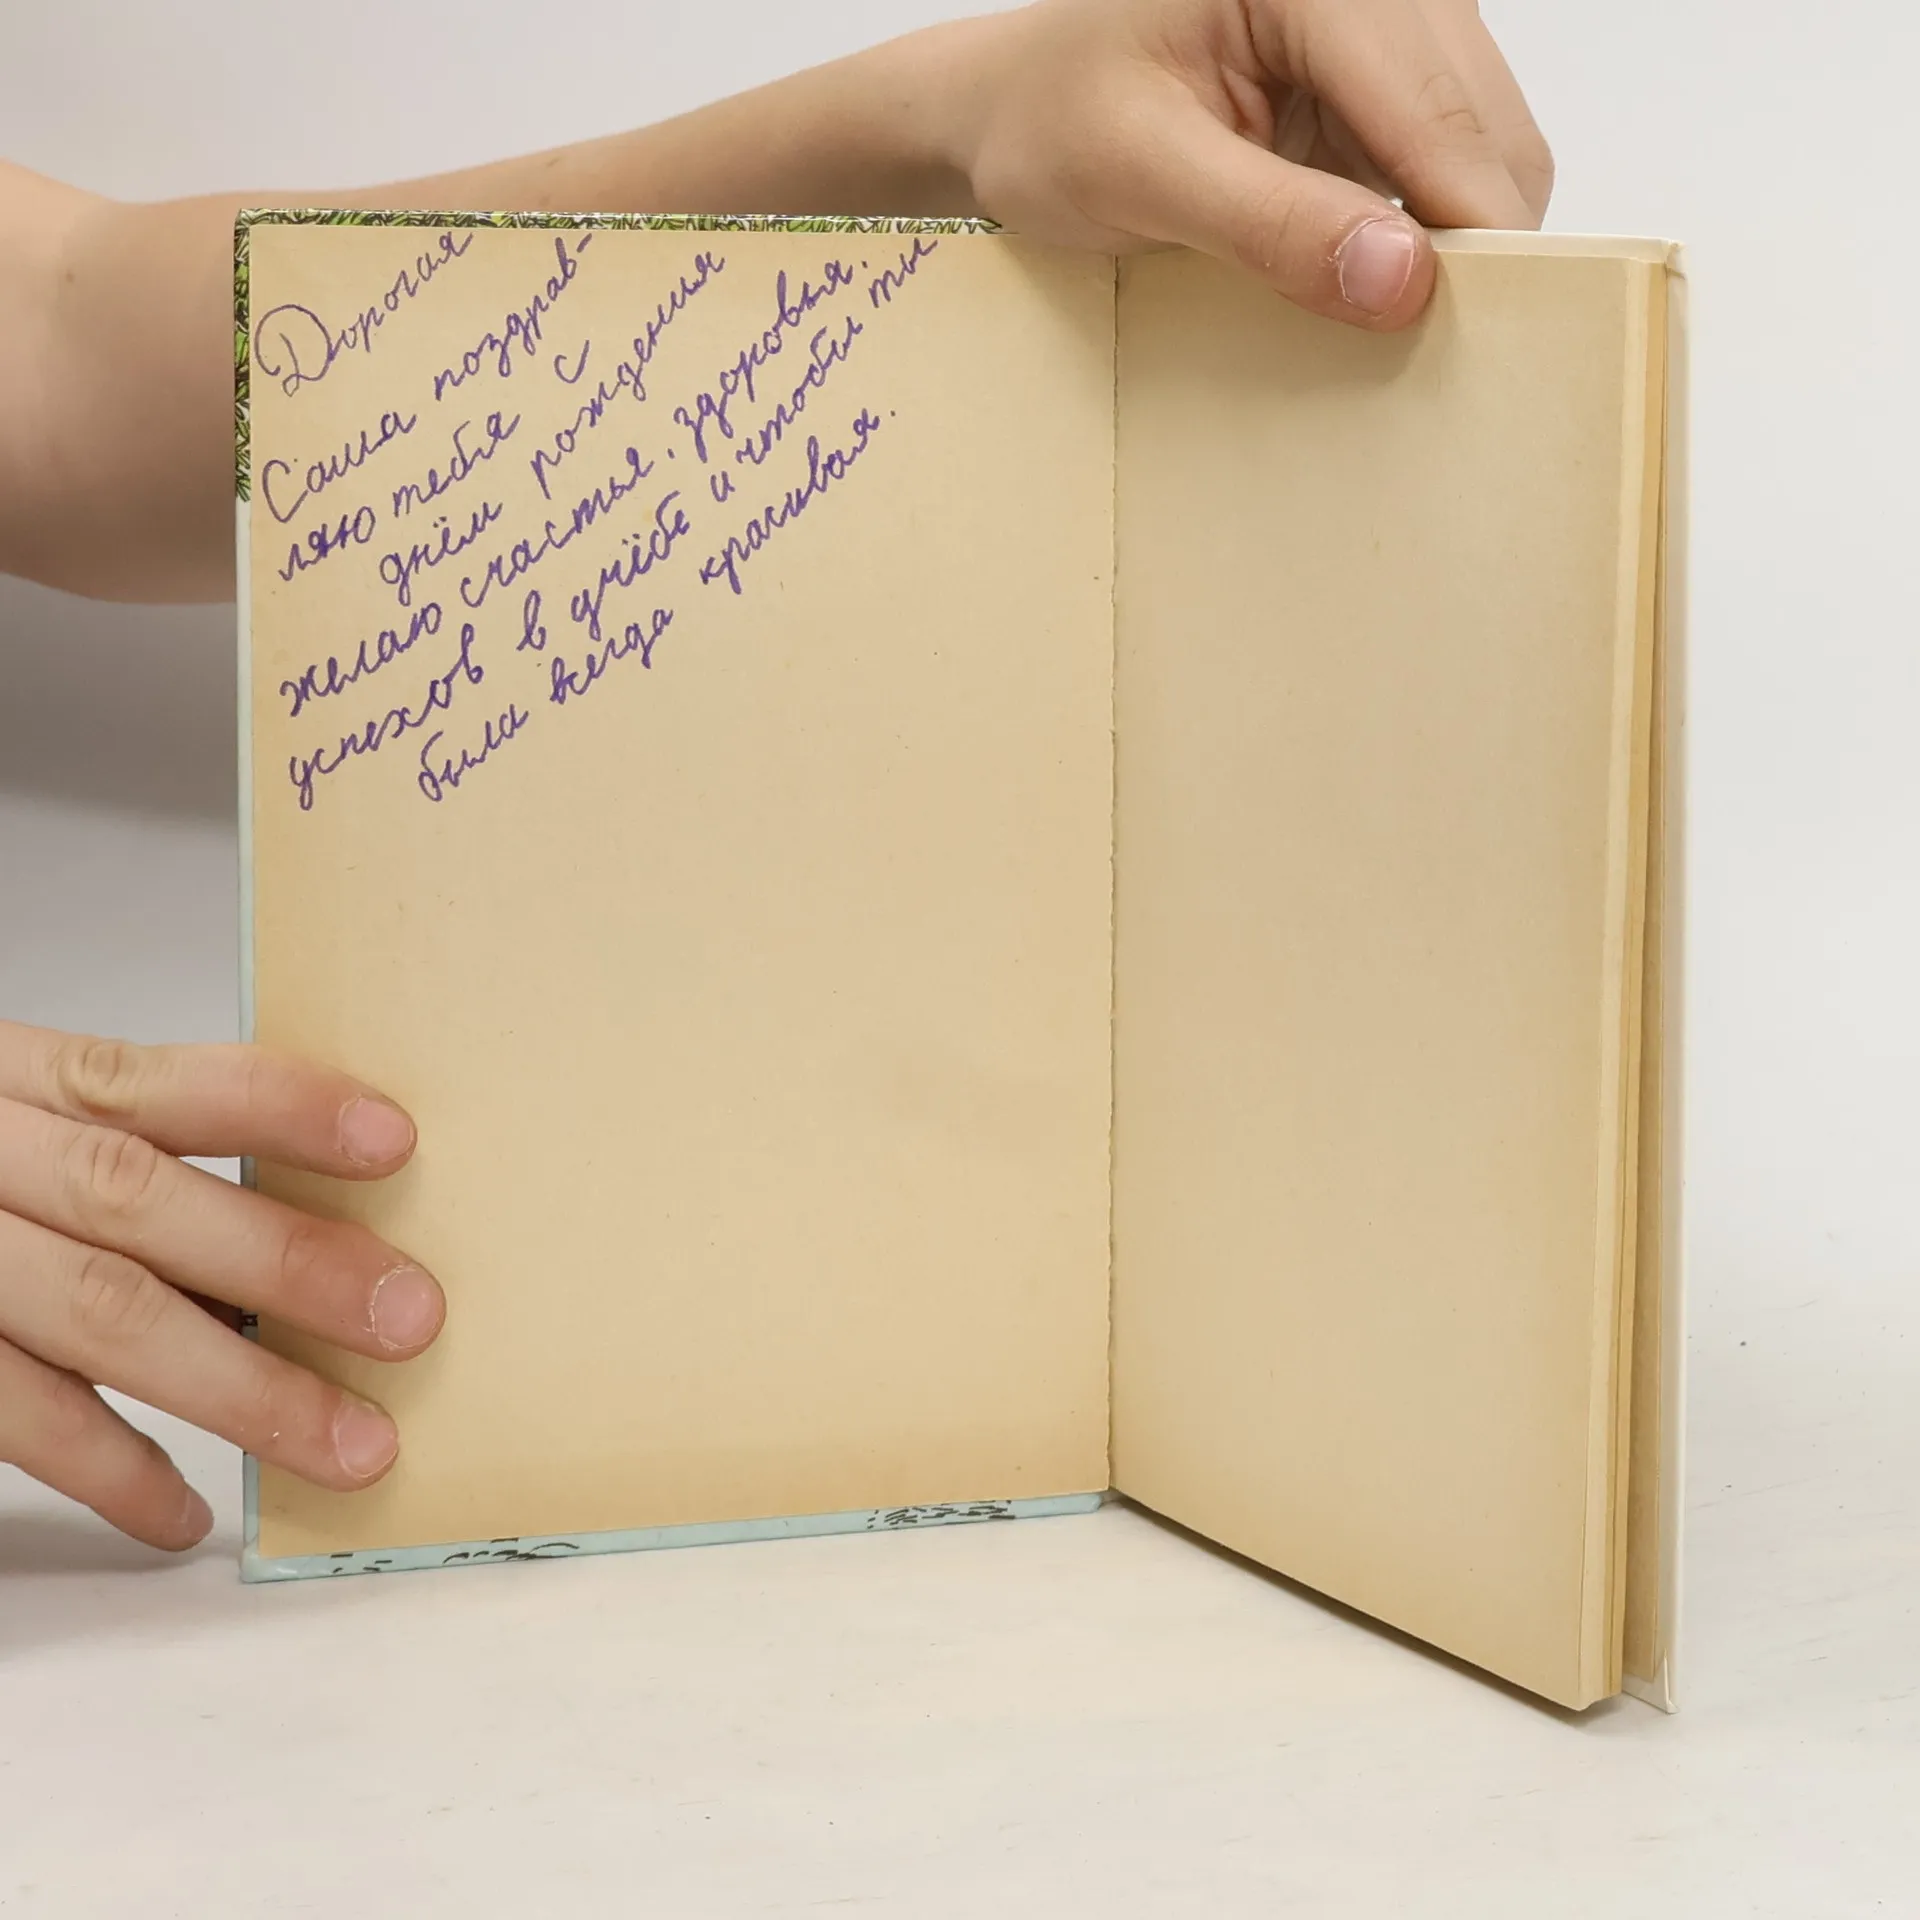 Дорогая
Саша поздрав-
ляю тебя с
днём рождения
желаю счастья, здоровья.
успехов в учёбе и чтобы ты
была всегда красивая.